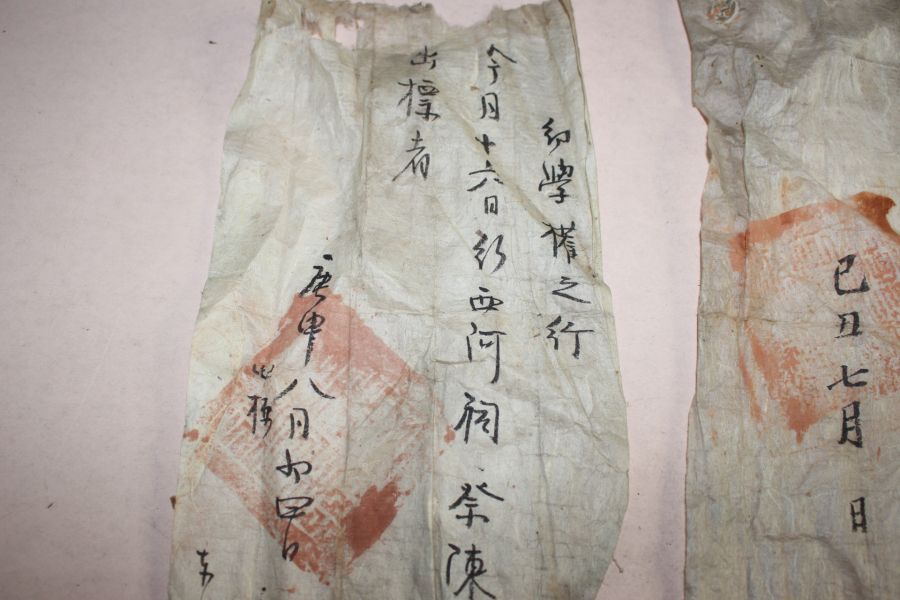 幼學權之行
今月十六日行西河祠祭陳
出標者
庚申八月初四日
出標
己丑七月 日